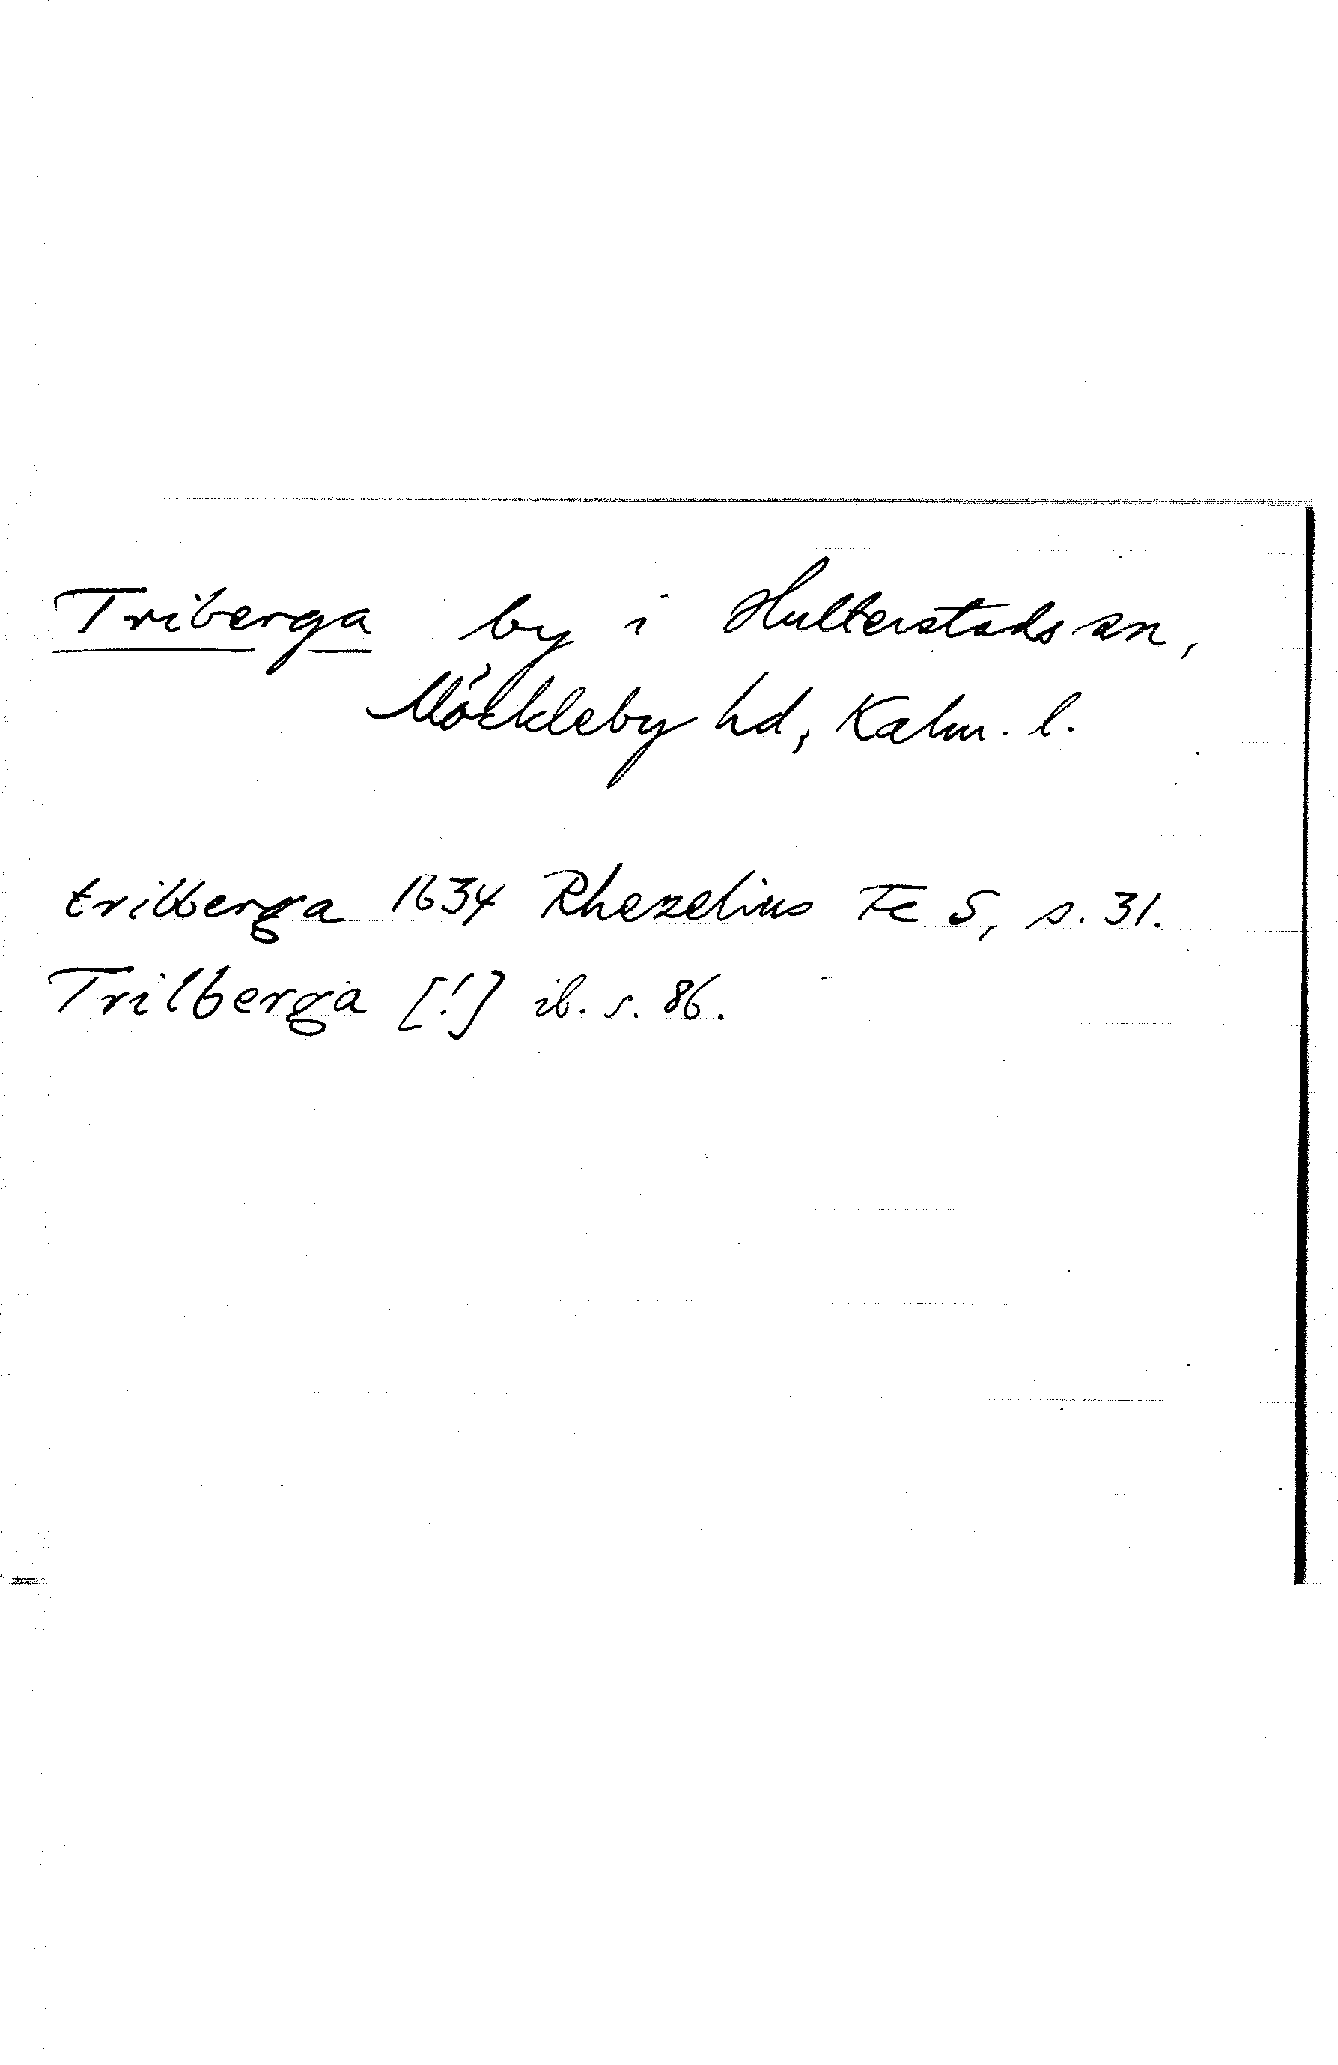 Triberga by i Hulterstads sn,
Möckleby hd, Kalm. l.
tribberga 1634 Rhezelius Fc 5, s. 31.
Trilberga [!] ib. s. 86.